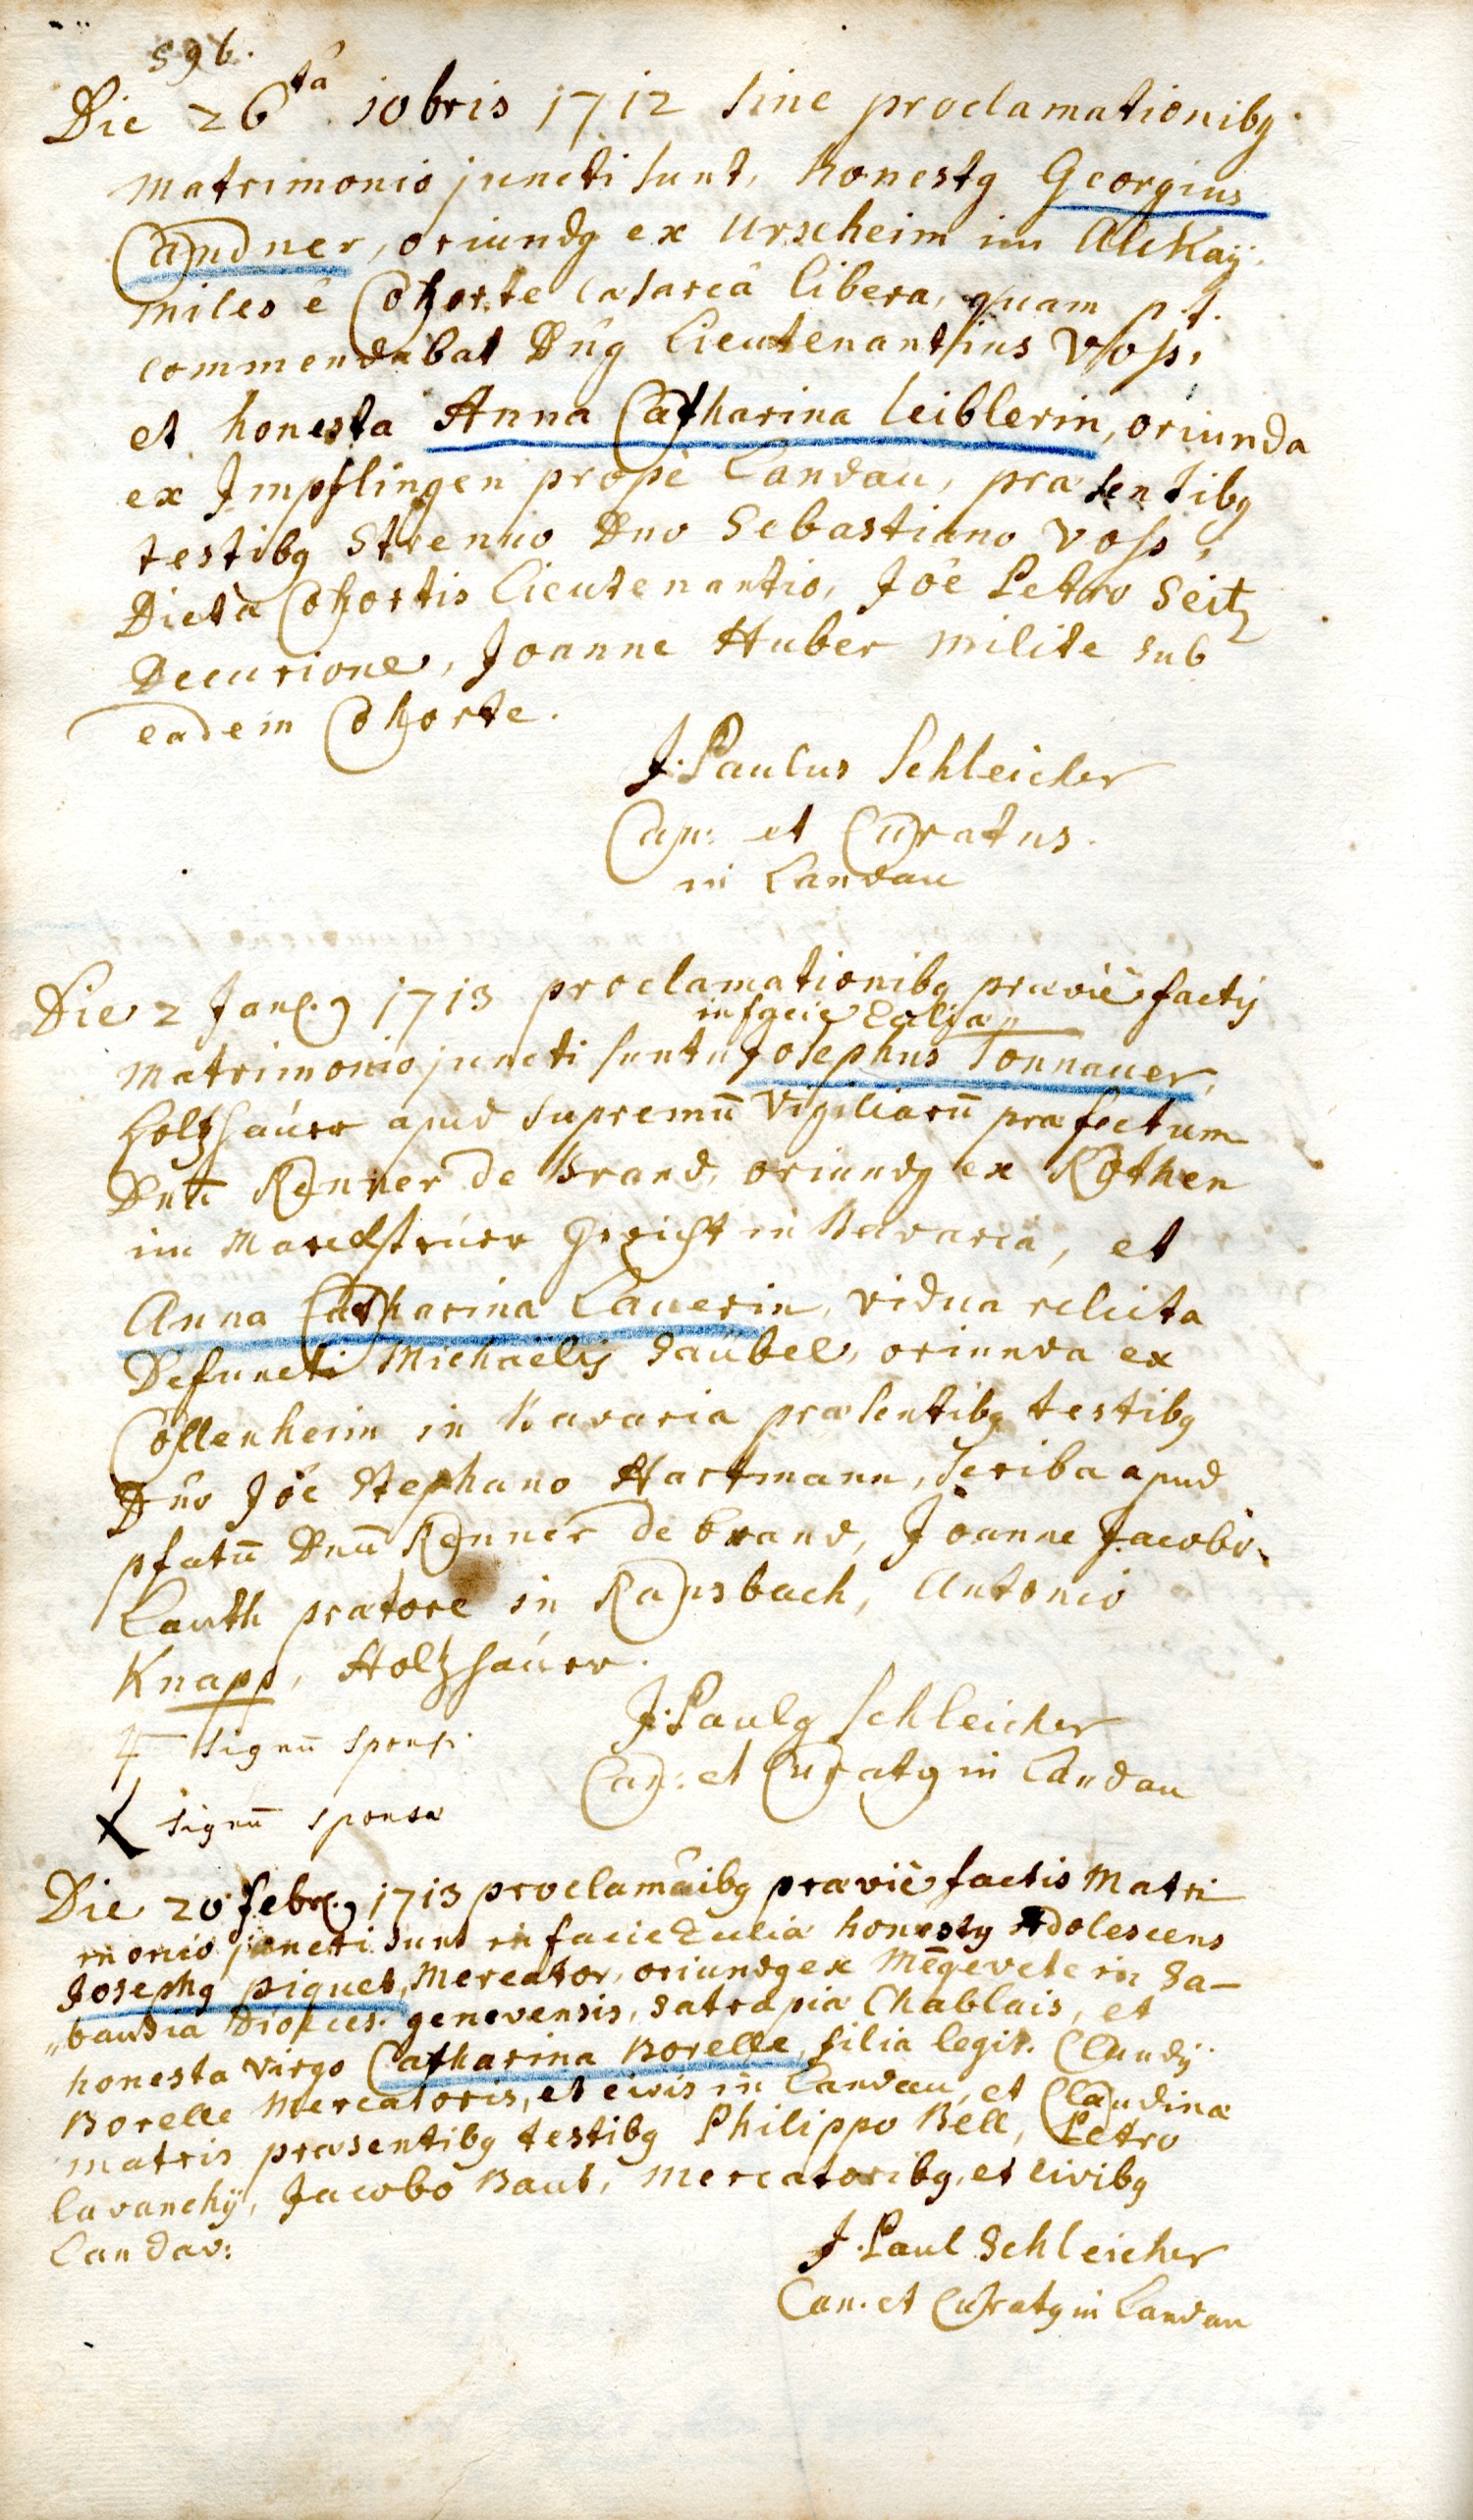 596.
Die 26tâ 10bris 1712 sine proclamationibq
Matrimonio juncti sunt, honestq Georgius
Candner, oriundq ex Urscheim im
miles ê Cohorte Casareâ libera, quam p.t.
commendabat Dnq Lieutenantius Voss,
et honesta Anna Catharina leiblerin, oriunda
ex Impflingen propè Landau, præsentibq
testibq Strenuo Dno Sebastiano Voss,
Dicta Cohortis Lieutenantio, Jôe Petro Seitz
Decurione, Joanne Huber milite sub
eadem Cohorte.
J. Paulus Schleicher
Can: et Curatus.
in Landau
Die 2 Jan. 1713 proclamationibq præviè factis
in facie Eccliæ
Matrimonio juncti sunt Josephus Tonnauer,
Holtzhauer apud supremu̅ Vigiliaru̅ præfectum
Dnu̅ Renner de brand, oriundq ex Rothen
im Gericht in Bavaria, et
Anna Catharina Lauerin, vidua relicta
Defuncti Michaëlis Saübel, oriunda ex
Collenheim in Bavaria præsentibq testibq
Dnô Jôe Stephano Hartmann, Scriba apud
pfatu̅ Dnu̅ Renner de brand, Joanne Jacobo
Lauth prætore in Ransbach, Antonio
Knapp, Holtzhauer.
signu̅ sponsi
J. Paulq Schleicher
Can: et Curatq in Landau
X signu̅ sponsæ
Die 20 febr. 1713 proclamâibq præviè factis Matri
monio juncti sunt in facie Eccliæ honestq Adolescens
Josephq piquet, Mercator, oriundq ex Me̅gevete in Sa-
"baudia Dioeces. genevensis, satrapiæ Chablais, et
honesta virgo Catharina Borelle, filia legit. Claudij
Borelle Mercatoris, et civis in Landau, et Claudinæ
matris præsentibq testibq Philippo Bell, Petro
lavanchÿ, Jacobo Baut, Mercatoribq, et civibq
Landav:
J. Paul Schleicher
Can. et Curatq in Landau